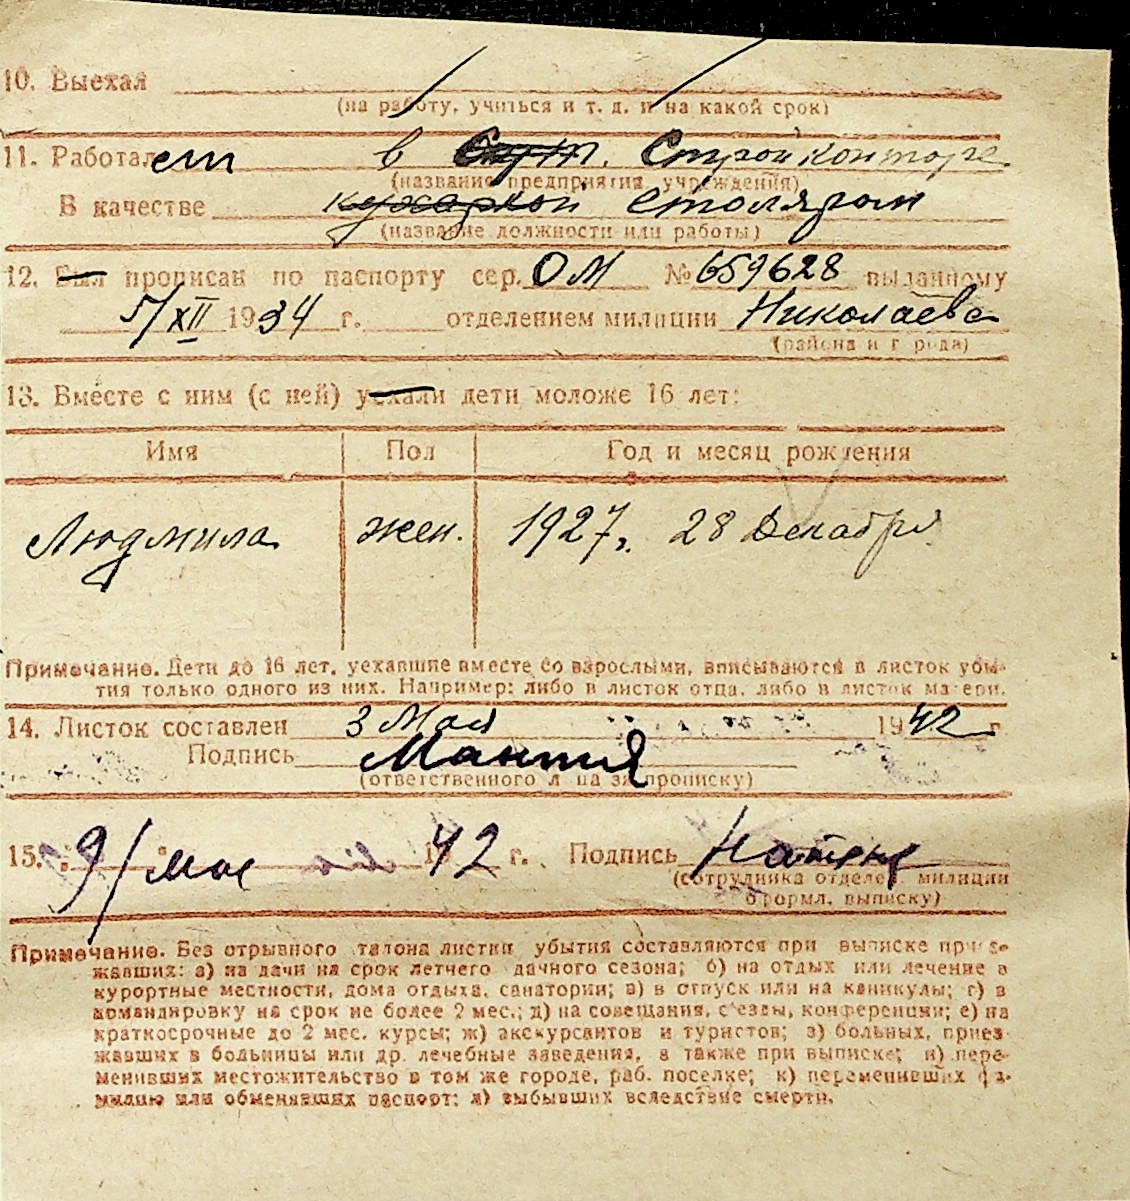 10. Выехал
(на работу, учиться и т. д. и на какой срок)
11. Работает в Стройконторе
(название предприятия, учреждения)
В качестве кухаркой столяром
(название должности или работы)
12. Был прописан по паспорту сер. ОМ № 659628 выданному
5/XII 1934 г. отделением милиции Николаева
(района и города)
13. Вместе с ним (с ней) уехали дети моложе 16 лет:
Имя Пол Год и месяц рождения
Людмила жен. 1927, 28 Декабря
Примечание. Дети до 16 лет, уехавшие вместе со взрослыми, вписываются в листок убы-
тия только одного из них. Например: либо в листок отца, либо в листок матери.
14. Листок составлен 3 Мая 1942 г
Подпись
(ответственного лица за прописку)
15. 9/ мая 1942 г. Подпись
(сотрудника отделен. милиции
оформл. выписку)
Примечание. Без отрывного талона листки убытия составляются при выписке приез-
жавших: а) на дачи на срок летнего дачного сезона; б) на отдых или лечение в
курортные местности, дома отдыха, санатории; в) в отпуск или на каникулы; г) в
командировку на срок не более 2 мес.; д) на совещания, с'езды, конференции; е) на
краткосрочные до 2 мес. курсы; ж) экскурсантов и туристов; з) больных, приез-
жавших в больницы или др. лечебные заведения, а также при выписке; и) пере-
менивших местожительство в том же городе, раб. поселке; к) переменивших фа-
милию или обменявших паспорт; л) выбывших вследствие смерти.